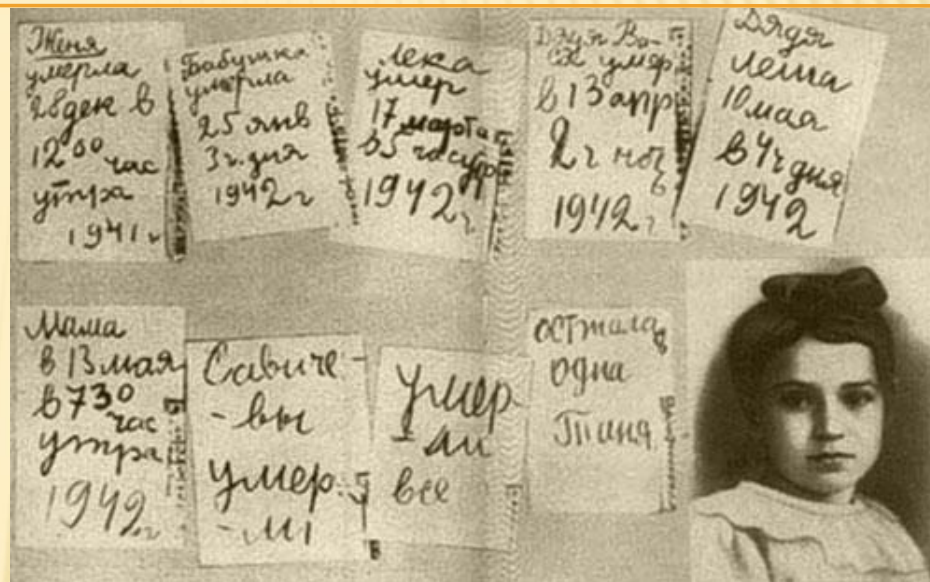 Женя
умерла
28 дек в
12 00 час
утра
1941 г
Бабушка
умерла
25 янв
3 ч. дня
1942 г
Лека
умер
17 марта
в 5 час утр
1942 г.
Дядя Ва-
ся умер
в 13 апр
2 ч ноч
1942 г
Дядя
Леша
10 мая
в 4 ч дня
1942
Мама
в 13 мая
в 7 30
час
утра
1942 г
Савиче-
-вы
умер-
-ли
умер
-ли
все
осталась
одна
Таня